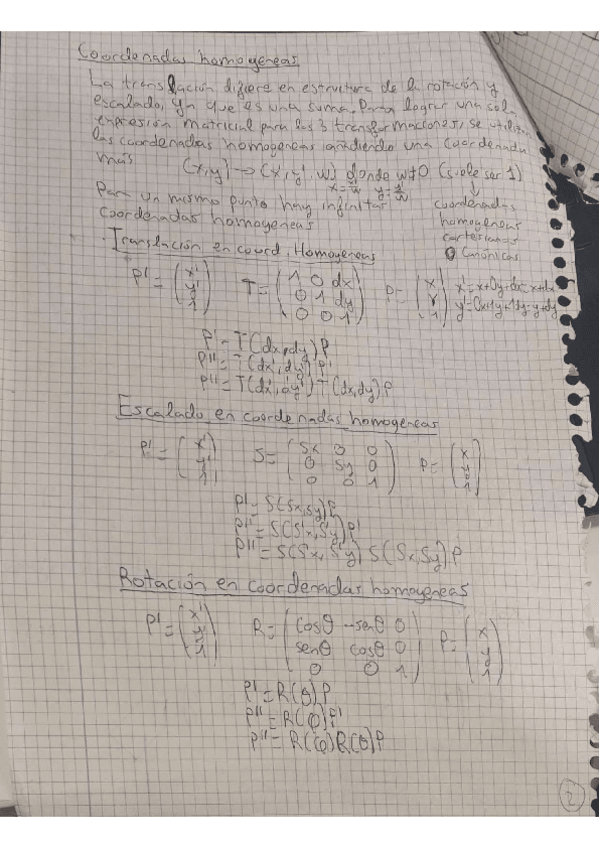 Coordenadas homogeneas
La translación difiere en estructura de la rotación y
escalado, ya que es una suma. Para lograr una sola
expresión matricial para las 3 transformaciones, se utilizan
las coordenadas homogeneas añadiendo una coordenada
más (x,y) → (x',y',w) donde w≠0 (suele ser 1)
x=x'/w y=y'/w
Para un mismo punto hay infinitas
coordenadas homogeneas
↓
coordenadas
homogeneas
cartesianas
o Canónicas
· Translación en coord. Homogeneas
P' = (x' y' 1) T = (1 0 dx 0 1 dy 0 0 1) P = (x y 1) x'=x+0y+dx=x+dx
y'=0x+1y+1dy=y+dy
P' = T(dx,dy)P
P'' = T(dx',dy')P'
P'' = T(dx',dy') T(dx,dy)P
Escalado en coordenadas homogeneas
P' = (x' y' 1) S = (Sx 0 0 0 Sy 0 0 0 1) P = (x y 1)
P' = S(Sx,Sy)P
P'' = S(S'x,S'y)P'
P'' = S(S'x,S'y) S(Sx,Sy)P
Rotación en coordenadas homogeneas
P' = (x' y' 1) R = (cosθ -senθ 0 senθ cosθ 0 0 0 1) P = (x y 1)
P' = R(θ)P
P'' = R(φ)P'
P'' = R(φ)R(θ)P
2